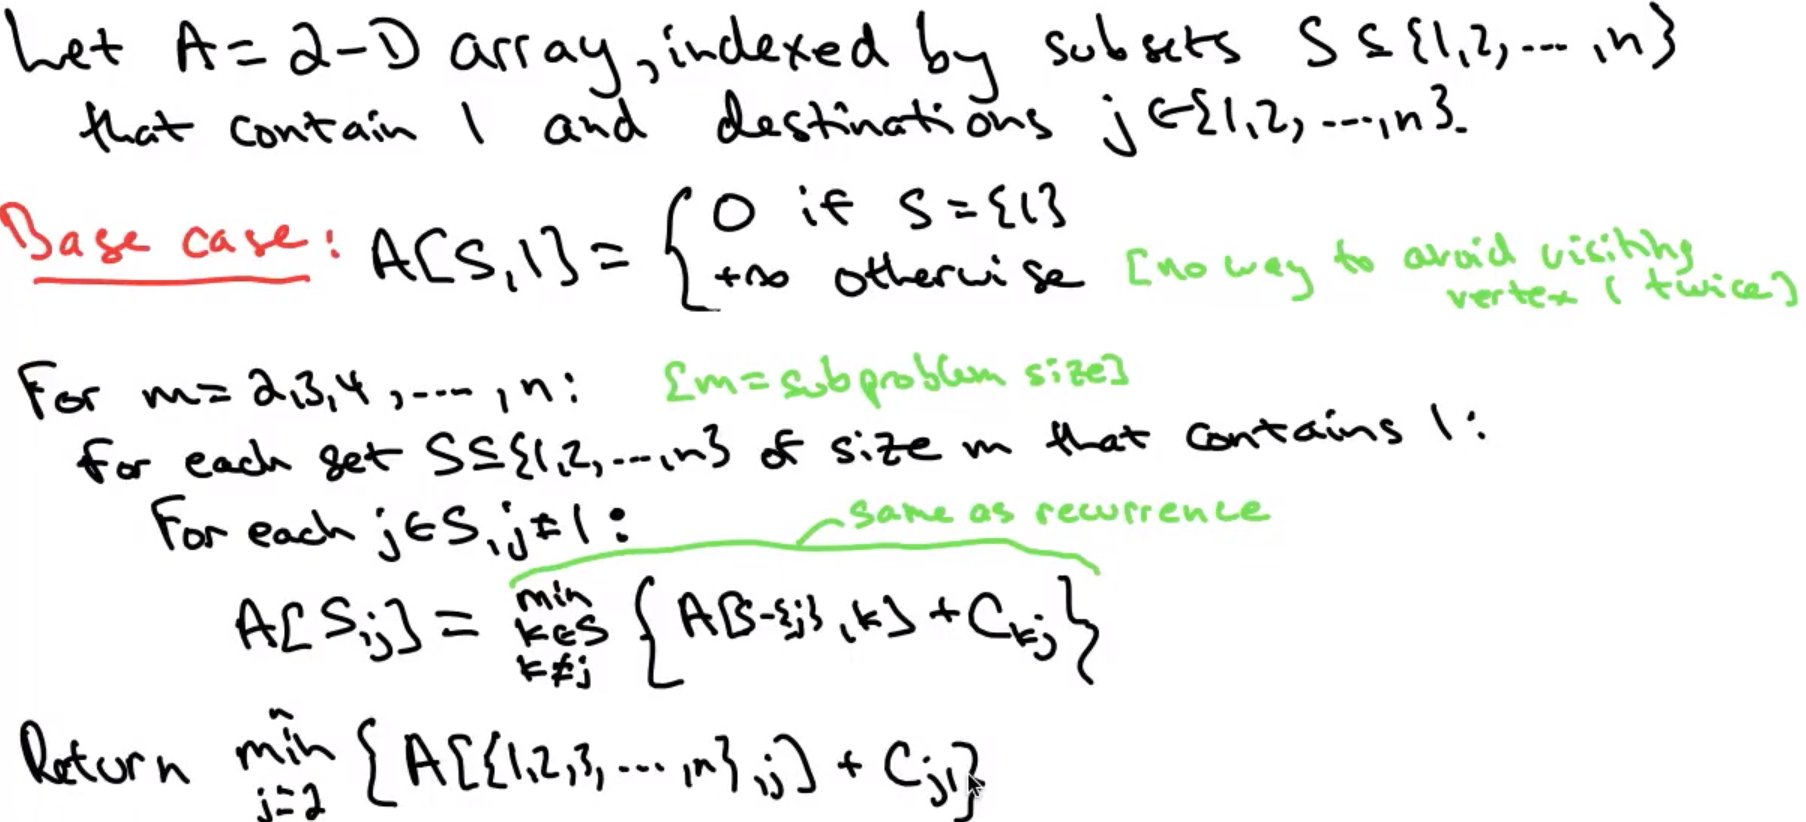 Let A = 2-D array, indexed by subsets S ⊆ {1,2, ..., n}
that contain 1 and destinations j ∈ {1,2, ..., n}.
Base case: A[S,1] = { 0 if S = {1}
+∞ otherwise [no way to avoid visiting
vertex 1 twice]
For m = 2,3,4, ..., n: [m = subproblem size]
For each set S ⊆ {1,2, ..., n} of size m that contains 1:
For each j ∈ S, j ≠ 1: same as recurrence
A[S,j] = min k∈S k≠j { A[S-{j},k] + C_kj }
Return min j=2 n { A[{1,2,3, ..., n},j] + C_j1 }